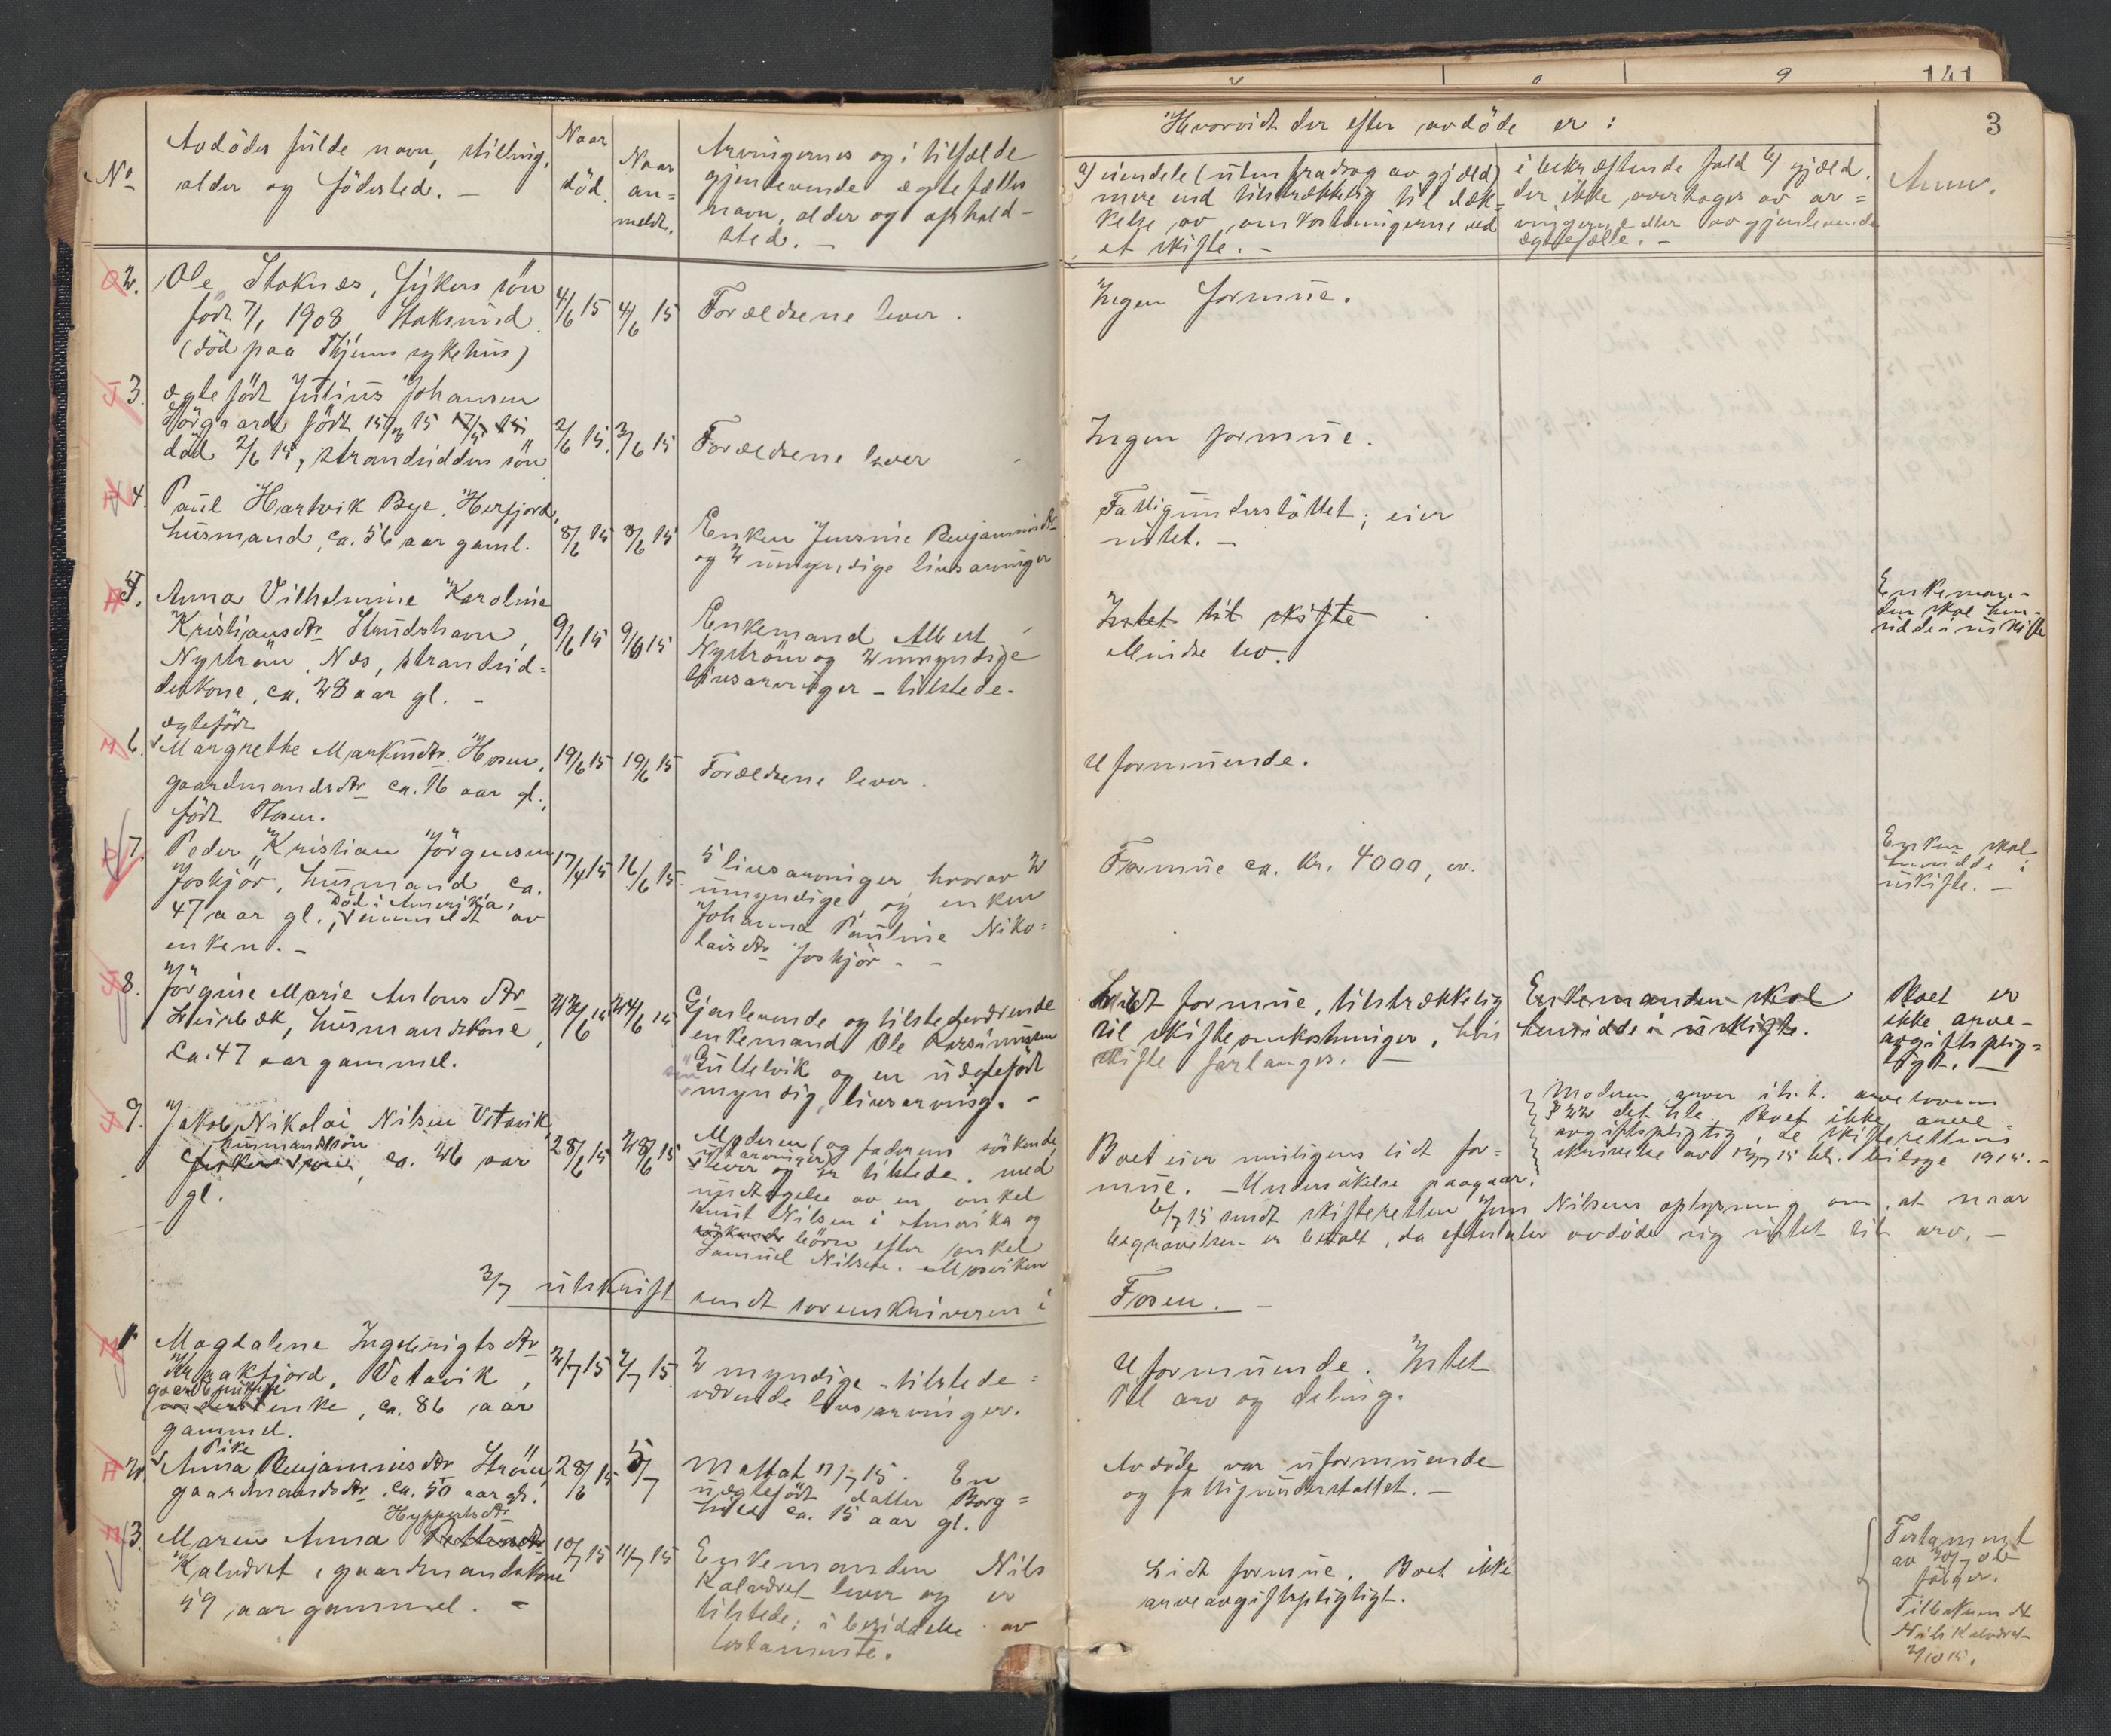 141
3
No
Avdödes fulde navn, stilling,
alder og födested. —
Naar
död.
Naar
an=
meldt.
Arvingernes og i tilfælde
gjenlevende ægtefælles
navn, alder og ophold-
sted. —
Hvorvidt der efter avdöde er :
a) eiendele (uten fradrag av gjæld)
mere end tilstrækkelig til dæk-
kelse av omkostningerne ved
et skifte. —
i bekræftende fald b) gjæld,
der ikke overtages av ar=
vingerne eller av gjenlevende
ægtefælle. —
Anm.
2.
Ole Stoknes, fiskers sön
födt 7/1 1908, Stoksund.
(död paa Thjems sykehus)
4/6 15
4/6 15
Forældrene lever.
Ingen formue.
3.
ægtefödt Julius Johansen
Hörgaard födt
död 2/6 15, strandsidders sön
2/6 15.
3/6 15
Forældrene lever
Ingen formue.
4.
Paul Hartvik Bye, Herfjord,
husmand, ca. 56 aar gaml.
8/6 15
8/6 15
Enken Jensine Benjaminsdtr
og 2 umyndige livsarvinger
Fattigunderstöttet; eier
intet. —
5.
Anna Vilhelmine Karoline
Kristiansdtr
Nyström, Næs, strandsid=
derkone, ca. 28 aar gl. —
9/6 15
9/6 15
Enkemand Albert
Nyström og 2 umyndige
livsarvinger – tilstede.
Intet til skifte
Mindre bo.
Enkeman-
den skal hen-
sidde i uskifte
6.
ægtefödt
Margrethe Markusdtr. Hosen,
gaardmandsdtr ca. 16 aar gl.,
födt Hosen.
19/6 15
19/6 15
Forældrene lever.
Uformuende.
7.
Peder Kristian Jörgensen
Joskjör, husmand ca.
47 aar gl., död i Amerika, anmeldt av
enken. —
17/4 15
16/6 15.
5 livsarvinger, hvorav 2
umyndige, og enken
Johanna Pauline Niko=
laisdtr Joskjör. —
Formue ca. Kr. 4000,00.
Enken skal
hensidde i
uskifte. —
8.
Jörgine Marie Antonsdtr
husmandskone,
ca. 47 aar gammel.
24/6 15
Gjenlevende og tilstedeværende
enkemand Ole Rasmussen
og en uægtefödt
myndig livsarving. —
Lidt formue, tilstrækkelig
til skifteomkostninger, hvis
skifte forlanges. —
Enkemanden skal
hensidde i uskifte.
Boet er
ikke arve-
avgiftsplig=
tigt. —
9.
Jakob Nikolai Nilsen Vetavik
husmandssön
ca. 26 aar
gl.
28/6 15
28/6 15
Moderen (og faderens söskende
utarvinger)
lever og er tilstede, med
undtagelse av en onkel
Knut Nilsen i Amerika og
söskende börn efter onkel
Samuel Nilsen.
Boet eier muligens lidt for-
mue. — Undersökelse paagaar.
Moderen arver i h.t. arveloven
§ 22 det hele. Boet ikke arve-
avgiftspligtig, se skifterettens
skrivelse av
6/7 15 sendt skifteretten Jens Nilsens oplysning om, at naar
begravelsen er betalt, da efterlater avdöde sig intet til arv. —
3/7 utskrift sendt sorenskriveren i Fosen. —
1.
Magdalene Ingebrigtsdtr
Vetavik,
enke, ca. 86 aar
gammel.
2/7 15
2/7 15
2 myndige – tilstede=
værende livsarvinger.
Uformuende. Intet
til arv og deling.
2.
Pike
Anna Benjaminsdtr Ström,
gaardmandsdtr, ca. 50 aar gl.
28/6 15
5/7
En
uægtefödt datter Borg=
hild ca. 15 aar gl.
Avdöde var uformuende
og fattigunderstöttet. —
3.
Maren Anna
Kalvöret, gaardmandskone
59 aar gammel. —
10/7 15
11/7 15
Enkemanden Nils
Kalvöret lever og er
tilstede; i besiddelse av
testamente.
Lidt formue. Boet ikke
arveavgiftspligtigt.
Testament
følger.
Tilbakesendt
Nils Kalvöret